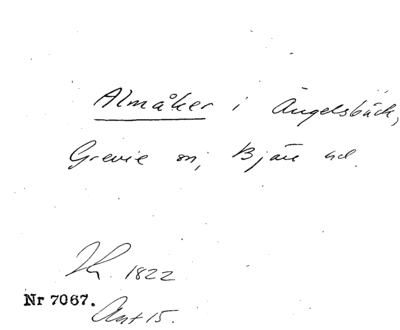 Almåker i Ängelsbäck,
Grevie sn, Bjäre hd.
1822
Nr 7067.
Ant 15.